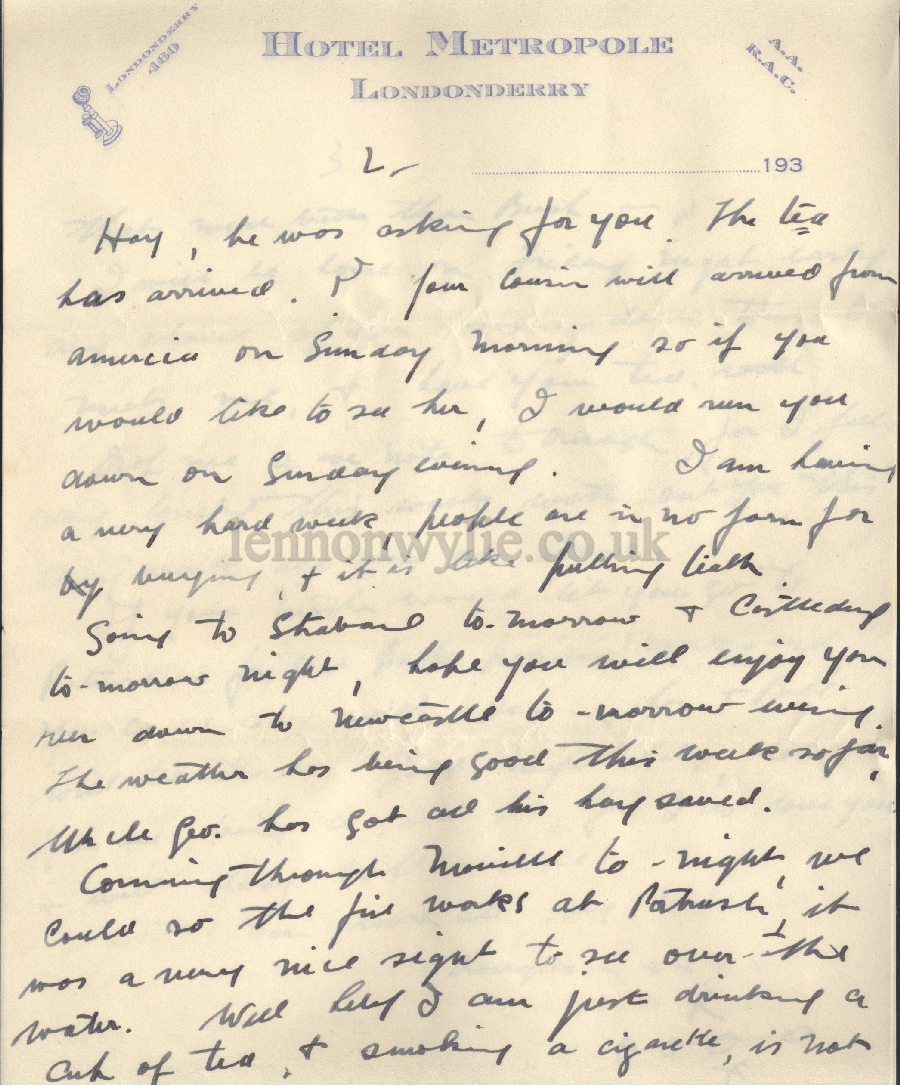 LONDONDERRY
469
HOTEL METROPOLE
LONDONDERRY
A.A.
R.A.C.
2-
193
Hay, he was asking for you. The tea
has arrived. Your cousin will arrived from
America on Sunday morning so if you
would like to see her, I would run you
down on Sunday evening. I am having
a very hard week, people are in no form for
by buying, & it is like pulling teeth
Going to Strabane to-morrow & Castlederg
to-morrow night, hope you will enjoy your
run down to Newcastle to-morrow evening.
The weather has being good this week so far,
Uncle Geo. has got all his hay saved.
Coming through Moville to-night, we
could so the fire works at Portrush, it
was a very nice sight to see over the
water. Well I am just drinking a
cup of tea, & smoking a cigarette, is not
lennonwylie.co.uk